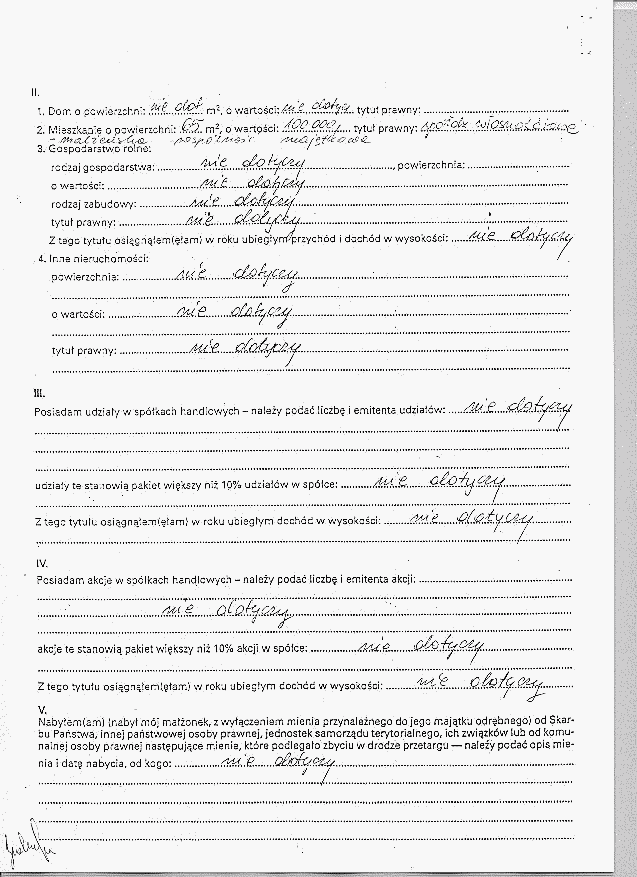 II.
1. Dom o powierzchni: nie dot. m², o wartości: nie dotyczy tytuł prawny:
2. Mieszkanie o powierzchni: 65 m², o wartości: 100 000, tytuł prawny: własnościowe
- małżeńska wspólność majątkowa
3. Gospodarstwo rolne:
rodzaj gospodarstwa: nie dotyczy, powierzchnia:
o wartości: nie dotyczy
rodzaj zabudowy: nie dotyczy
tytuł prawny: nie dotyczy
Z tego tytułu osiągnąłem(ęłam) w roku ubiegłym przychód i dochód w wysokości: nie dotyczy
4. Inne nieruchomości:
powierzchnia: nie dotyczy
o wartości: nie dotyczy
tytuł prawny: nie dotyczy
III.
Posiadam udziały w spółkach handlowych – należy podać liczbę i emitenta udziałów: nie dotyczy
udziały te stanowią pakiet większy niż 10% udziałów w spółce: nie dotyczy
Z tego tytułu osiągnąłem(ęłam) w roku ubiegłym dochód w wysokości: nie dotyczy
IV.
Posiadam akcje w spółkach handlowych – należy podać liczbę i emitenta akcji:
nie dotyczy
akcje te stanowią pakiet większy niż 10% akcji w spółce: nie dotyczy
Z tego tytułu osiągnąłem(ęłam) w roku ubiegłym dochód w wysokości: nie dotyczy
V.
Nabyłem(am) (nabył mój małżonek, z wyłączeniem mienia przynależnego do jego majątku odrębnego) od Skar-
bu Państwa, innej państwowej osoby prawnej, jednostek samorządu terytorialnego, ich związków lub od komu-
nalnej osoby prawnej następujące mienie, które podlegało zbyciu w drodze przetargu — należy podać opis mie-
nia i datę nabycia, od kogo: nie dotyczy